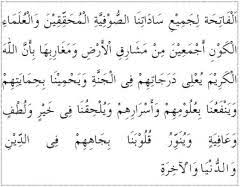 اَلْفَاتِحَةَ لِجَمِيْعِ سَادَاتِنَا الصُّوْفِيَّةِ الْمُحَقِّقِيْنَ وَالْعُلَمَاءِ
الْكَوْنِ أَجْمَعِيْنَ مِنْ مَشَارِقِ الْأَرْضِ وَمَغَارِبِهَا بِأَنَّ اللهَ
الْكَرِيْمَ يُعْلِى دَرَجَاتِهِمْ فِى الْجَنَّةِ وَيَحْمِيْنَا بِحِمَايَتِهِمْ
وَيَنْفَعُنَا بِعُلُوْمِهِمْ وَأَسْرَارِهِمْ وَيُلْحِقُنَا فِى خَيْرٍ وَلُطْفٍ
وَعَافِيَةٍ وَيُنَوِّرُ قُلُوْبَنَا بِجَاهِهِمْ فِى الدِّيْنِ
وَالدُّنْيَا وَالْآخِرَةِ